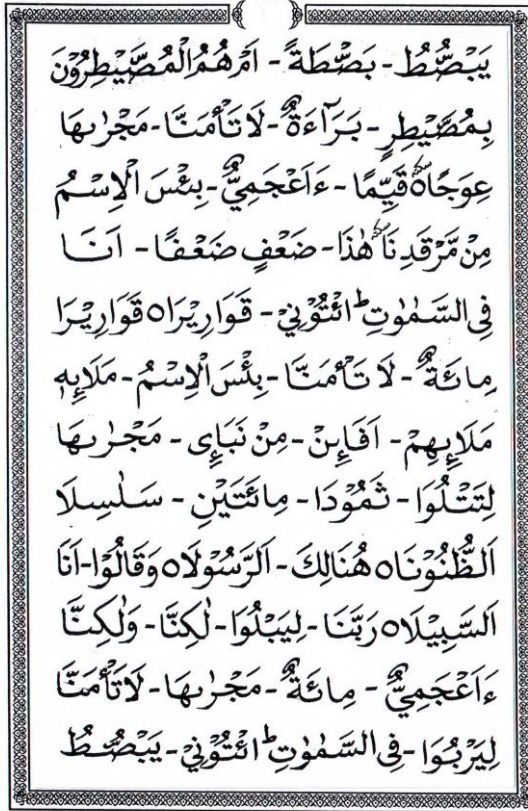 يَبْصُۜطُ - بَصْۜطَةً - اَمْ هُمُ الْمُصَۜيْطِرُوْنَ
بِمُصَۜيْطِرٍ - بَرَآءَةٌ - لَا تَأْمَنَّا - مَجْرٰىهَا
عِوَجًا ۜ۝ قَيِّمًا - ءَاَعْجَمِيٌّ - بِئْسَ الْاِسْمُ
مِنْ مَّرْقَدِنَا ۜ هٰذَا - ضَعْفٍ ضَعْفًا - اَنَا
فِى السَّمٰوٰتِ ؕ ائْتُوْنِيْ - قَوَارِيْرَا ۝ قَوَارِيْرَا
مِائَةٌ - لَا تَأْمَنَّا - بِئْسَ الْاِسْمُ - مَلَا۟ىِٕهٖ
مَلَا۟ىِٕهِمْ - اَفَا۟ىِٕنْ - مِنْ نَبَاِى - مَجْرٰىهَا
لِتَتْلُوَا - ثَمُوْدَا - مِائَتَيْنِ - سَلٰسِلَا
اَلظُّنُوْنَا ۝ هُنَالِكَ - اَلرَّسُوْلَا ۝ وَقَالُوْا - اَنَا
اَلسَّبِيْلَا ۝ رَبَّنَا - لِيَبْلُوَا - لٰكِنَّا - وَلٰكِنَّا
ءَاَعْجَمِيٌّ - مِائَةٌ - مَجْرٰىهَا - لَا تَأْمَنَّا
لِيَرْبُوَا - فِى السَّمٰوٰتِ ؕ ائْتُوْنِيْ - يَبْصُۜطُ